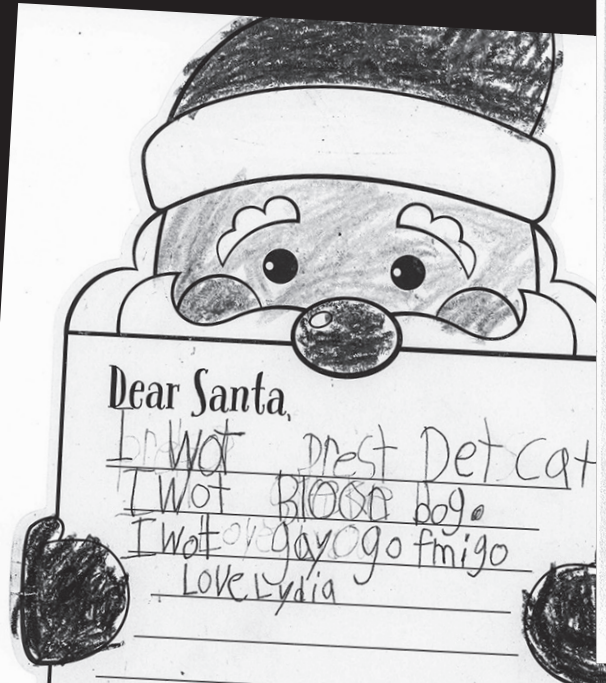 Dear Santa,
I Wot Drest Det Cat
I Wot Bog.
I Wot gayogo fmigo
Love Lydia